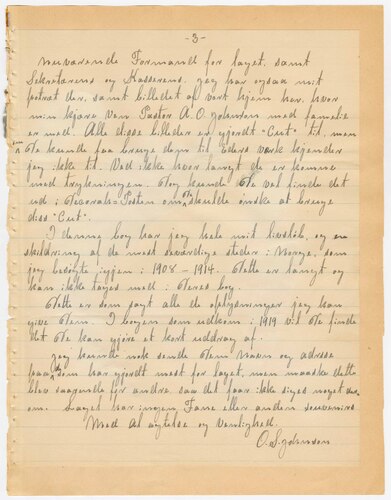 -3-
nuvarende Formand for laget, samt
Sekretærens og Kasserens. Jeg har ogsaa mit
potræt der, samt billedet af vort hjem her, hvor
min kjære ven Pastor A. O. Johnson med familie
er med. Alle disse billeder er gjordt "Cut" til, men
om De kunde faa bruge dem til Eders verk kjender
jeg ikke til. Ved ikke hvor langt de er komne
med trykningen. Dog kunde De vel finde det
ud i Decorah-Posten om De skulde ønske at bruge
diss "Cut".
I denne bog har jeg hele mit livsløb, og en
skildring af de mest seværdige steder i Norge, som
jeg besøgte igjen i 1908 - 1914. Dette er langt og
kan ikke tages med i Deres bog.
Dette er som sagt alle de oplysninger jeg kan
give Dem. I bogen som udkom i 1919 vil De finde
lidt De kan gjøre et kort uddrag af.
Jeg kunde nok sende Dem Navn og adrese
paa dem som har gjordt mest for laget, men maaske dette
blev saarende for andre, saa det faar ikke siges noget der-
om. Laget har ingen Fane eller anden souvenirs
Med al agtelse og venlighed.
O. S. Johnson